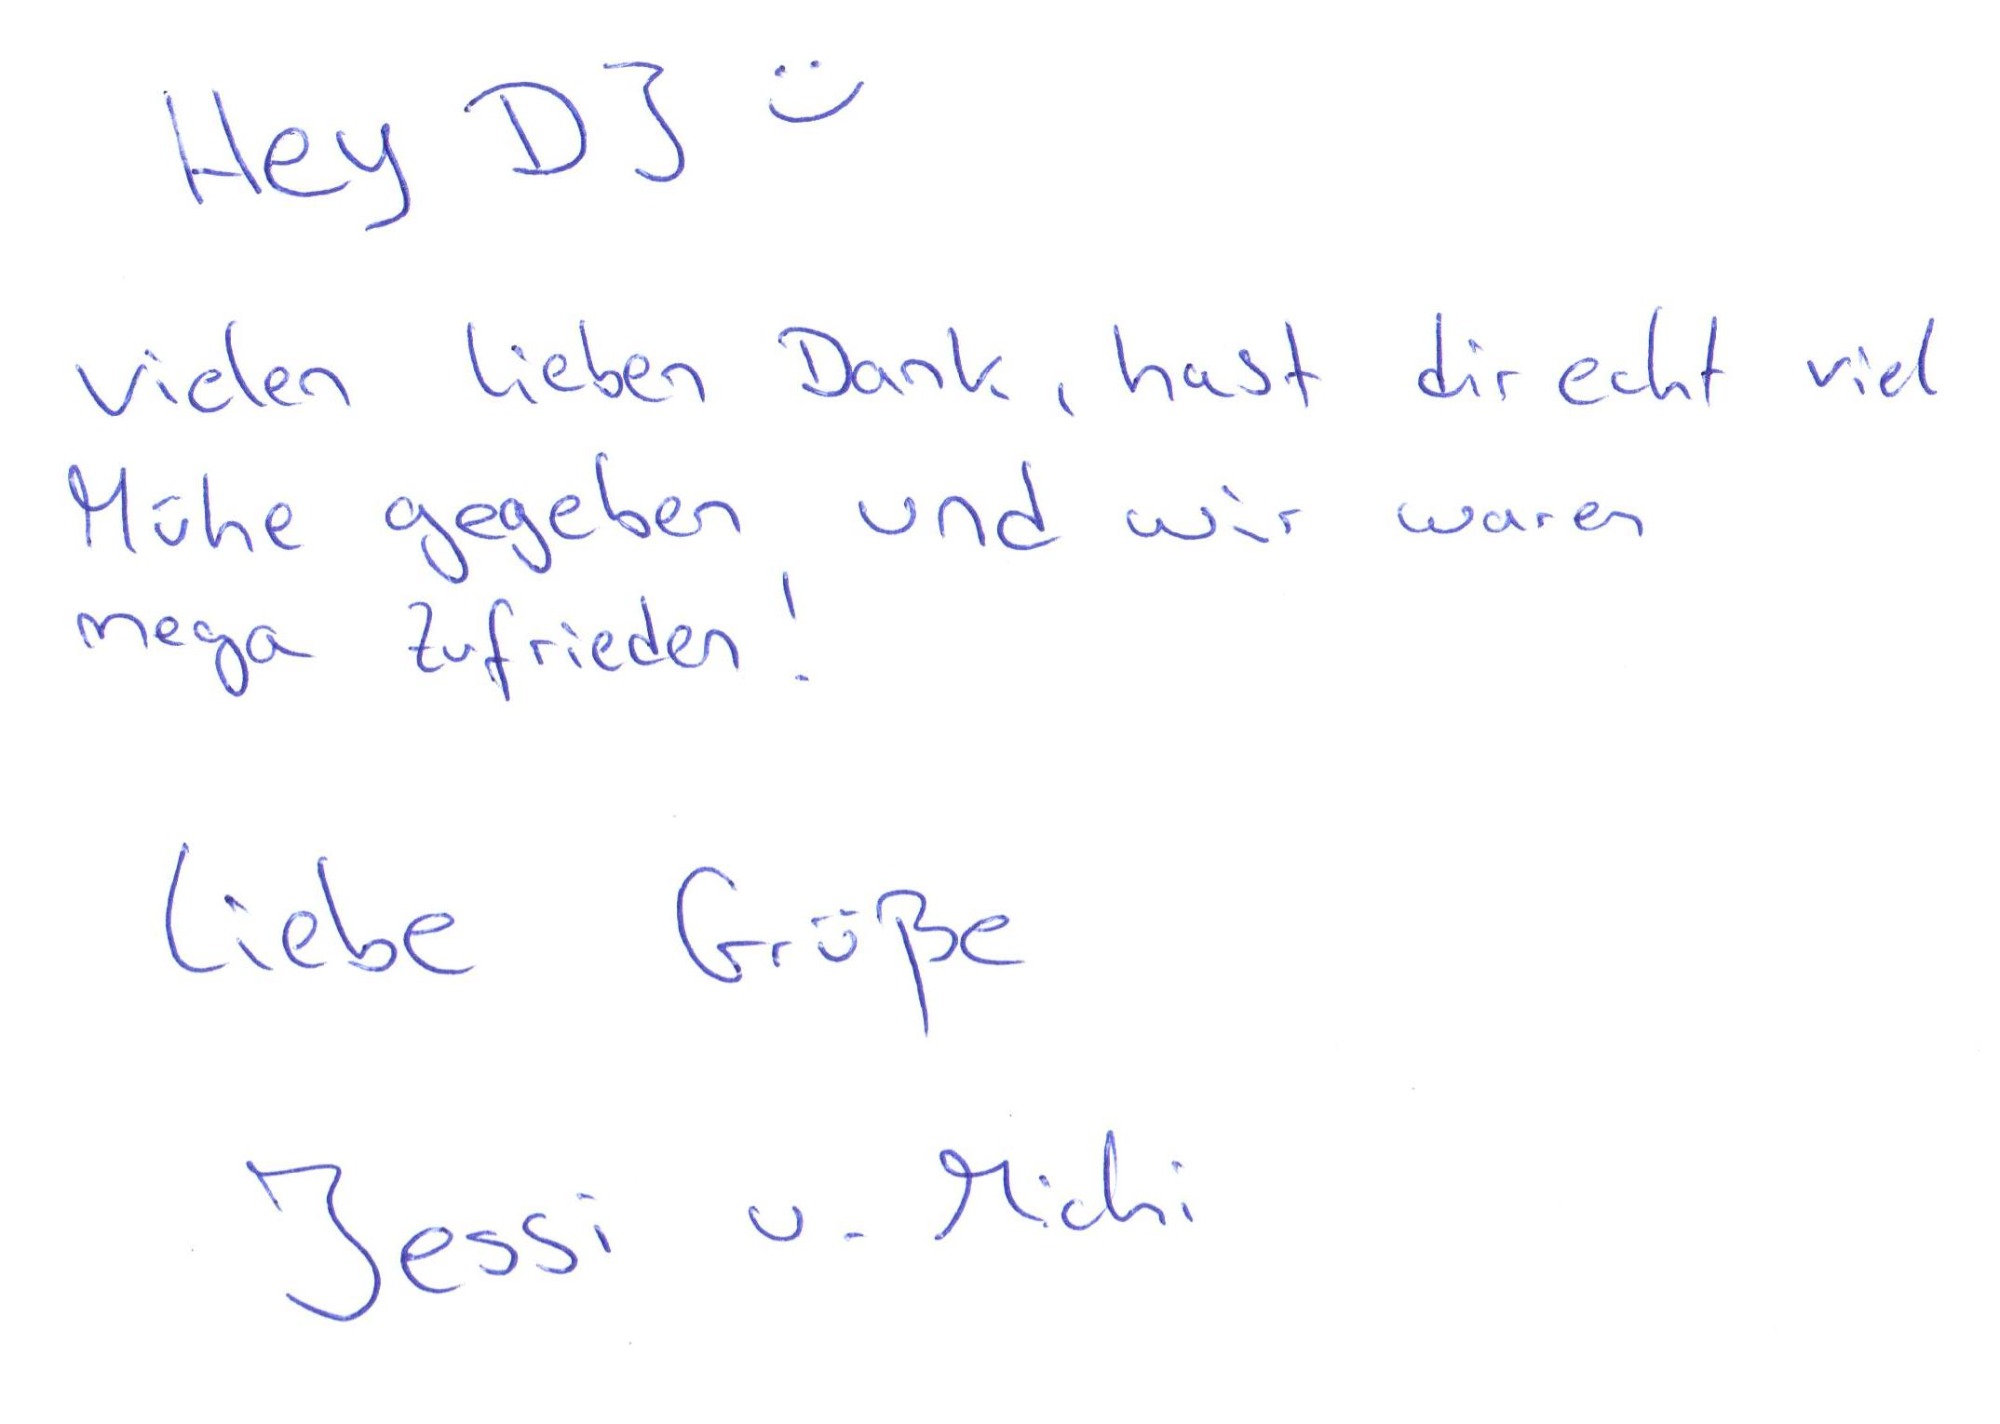 Hey DJ :)
vielen lieben Dank, hast dir echt viel
Mühe gegeben und wir waren
mega zufrieden!
Liebe Grüße
Jessi u. Michi